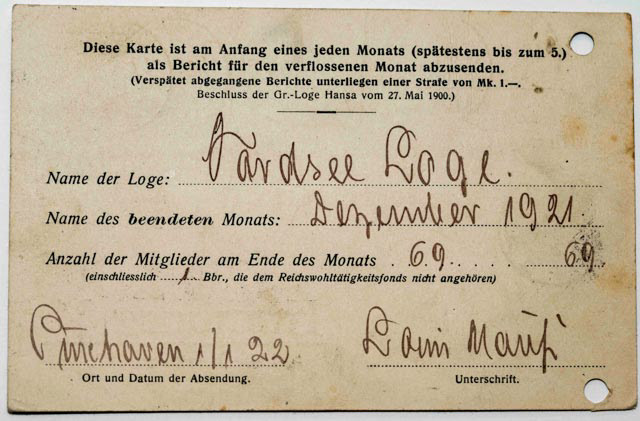 Diese Karte ist am Anfang eines jeden Monats (spätestens bis zum 5.)
als Bericht für den verflossenen Monat abzusenden.
(Verspätet abgegangene Berichte unterliegen einer Strafe von Mk. 1.—.
Beschluss der Gr.-Loge Hansa vom 27. Mai 1900.)
Name der Loge: Nordsee Loge.
Name des beendeten Monats: Dezember 1921.
Anzahl der Mitglieder am Ende des Monats 69 69
(einschliesslich 1 Bbr., die dem Reichswohltätigkeitsfonds nicht angehören)
Cuxhaven 1/1 22
Ort und Datum der Absendung. Unterschrift.